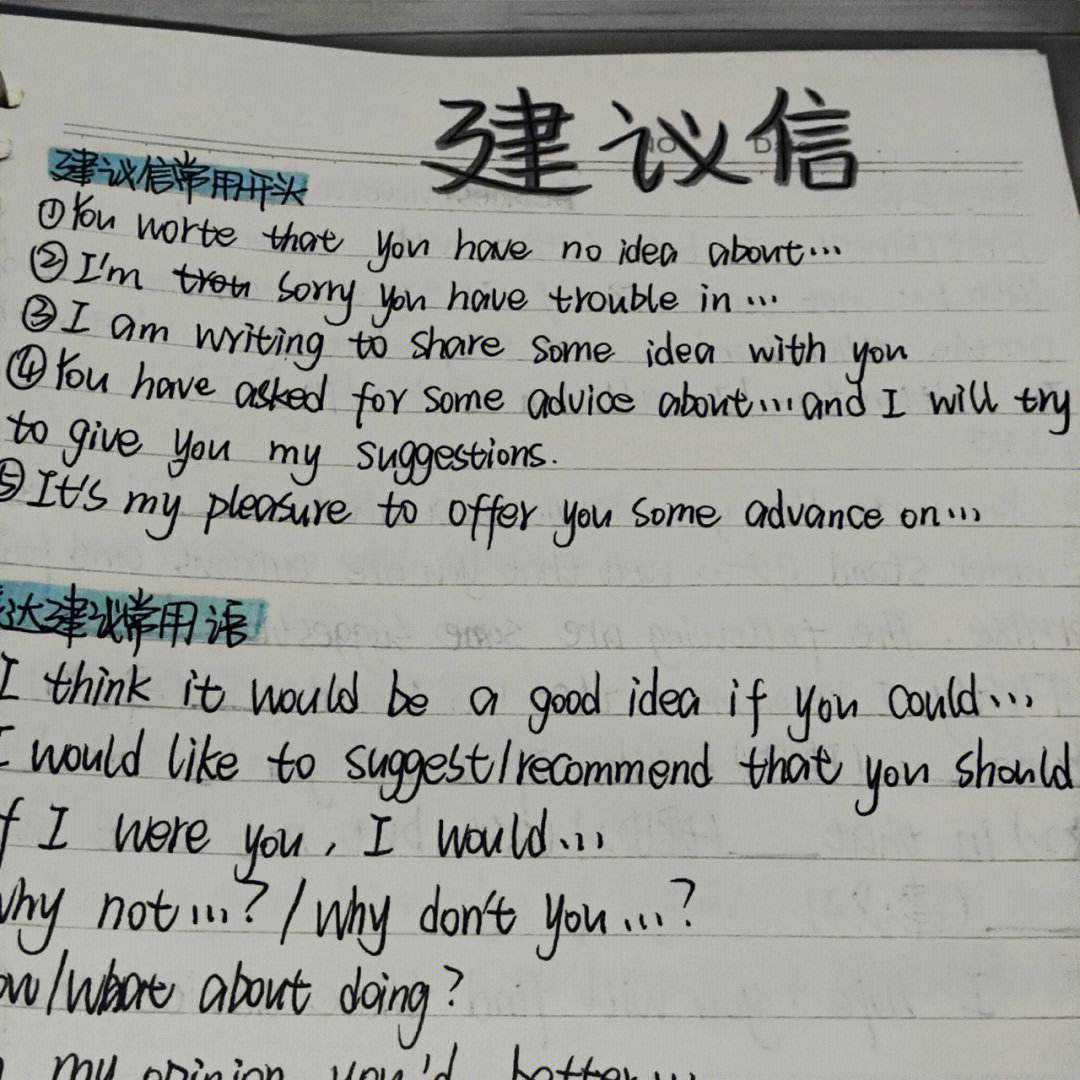 建议信
建议信常用开头
①You worte that you have no idea about...
②I'm trou sorry you have trouble in...
③I am writing to share some idea with you
④You have asked for some advice about...and I will try
to give you my suggestions.
⑤It's my pleasure to offer you some advance on...
达建议常用语
I think it would be a good idea if you could...
I would like to suggest/recommend that you should
f I were you, I would...
why not...?/why don't you...?
ow/what about doing?
my opinion you'd better...